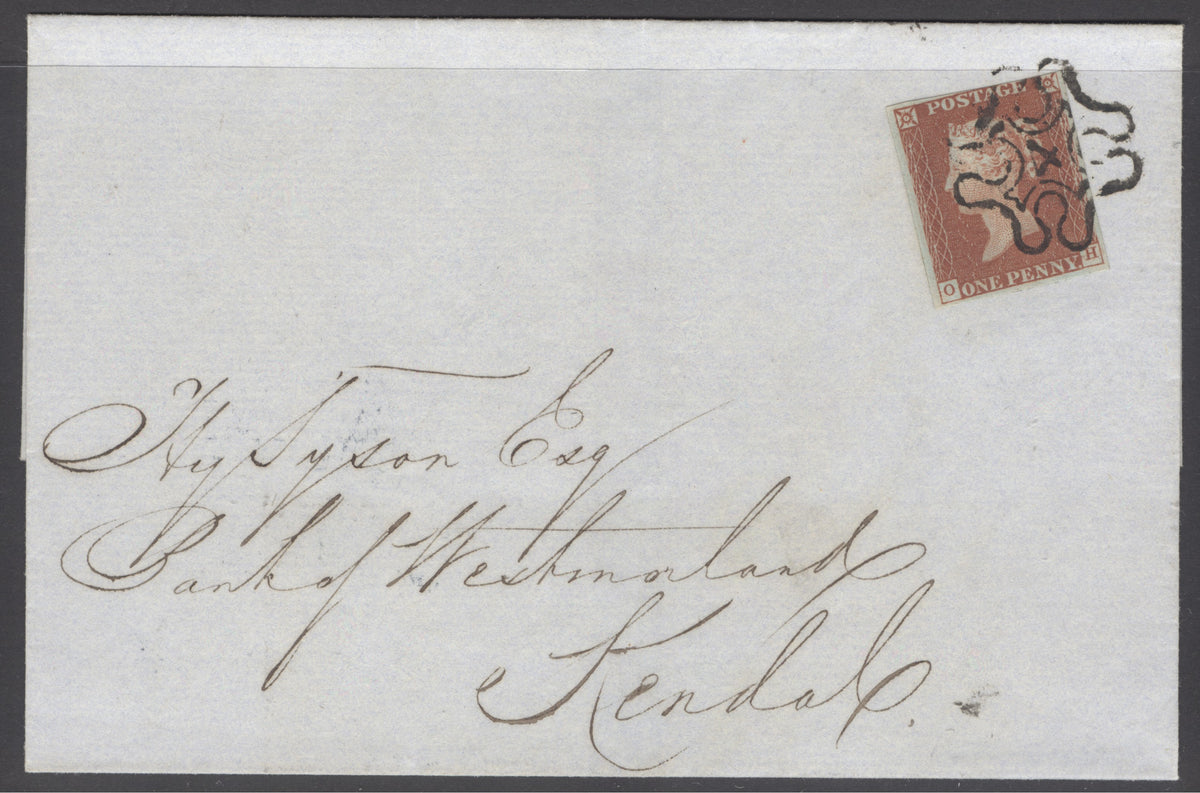 POSTAGE
O ONE PENNY. H
Hy Tyson Esq
Bank of Westmorland
Kendal.